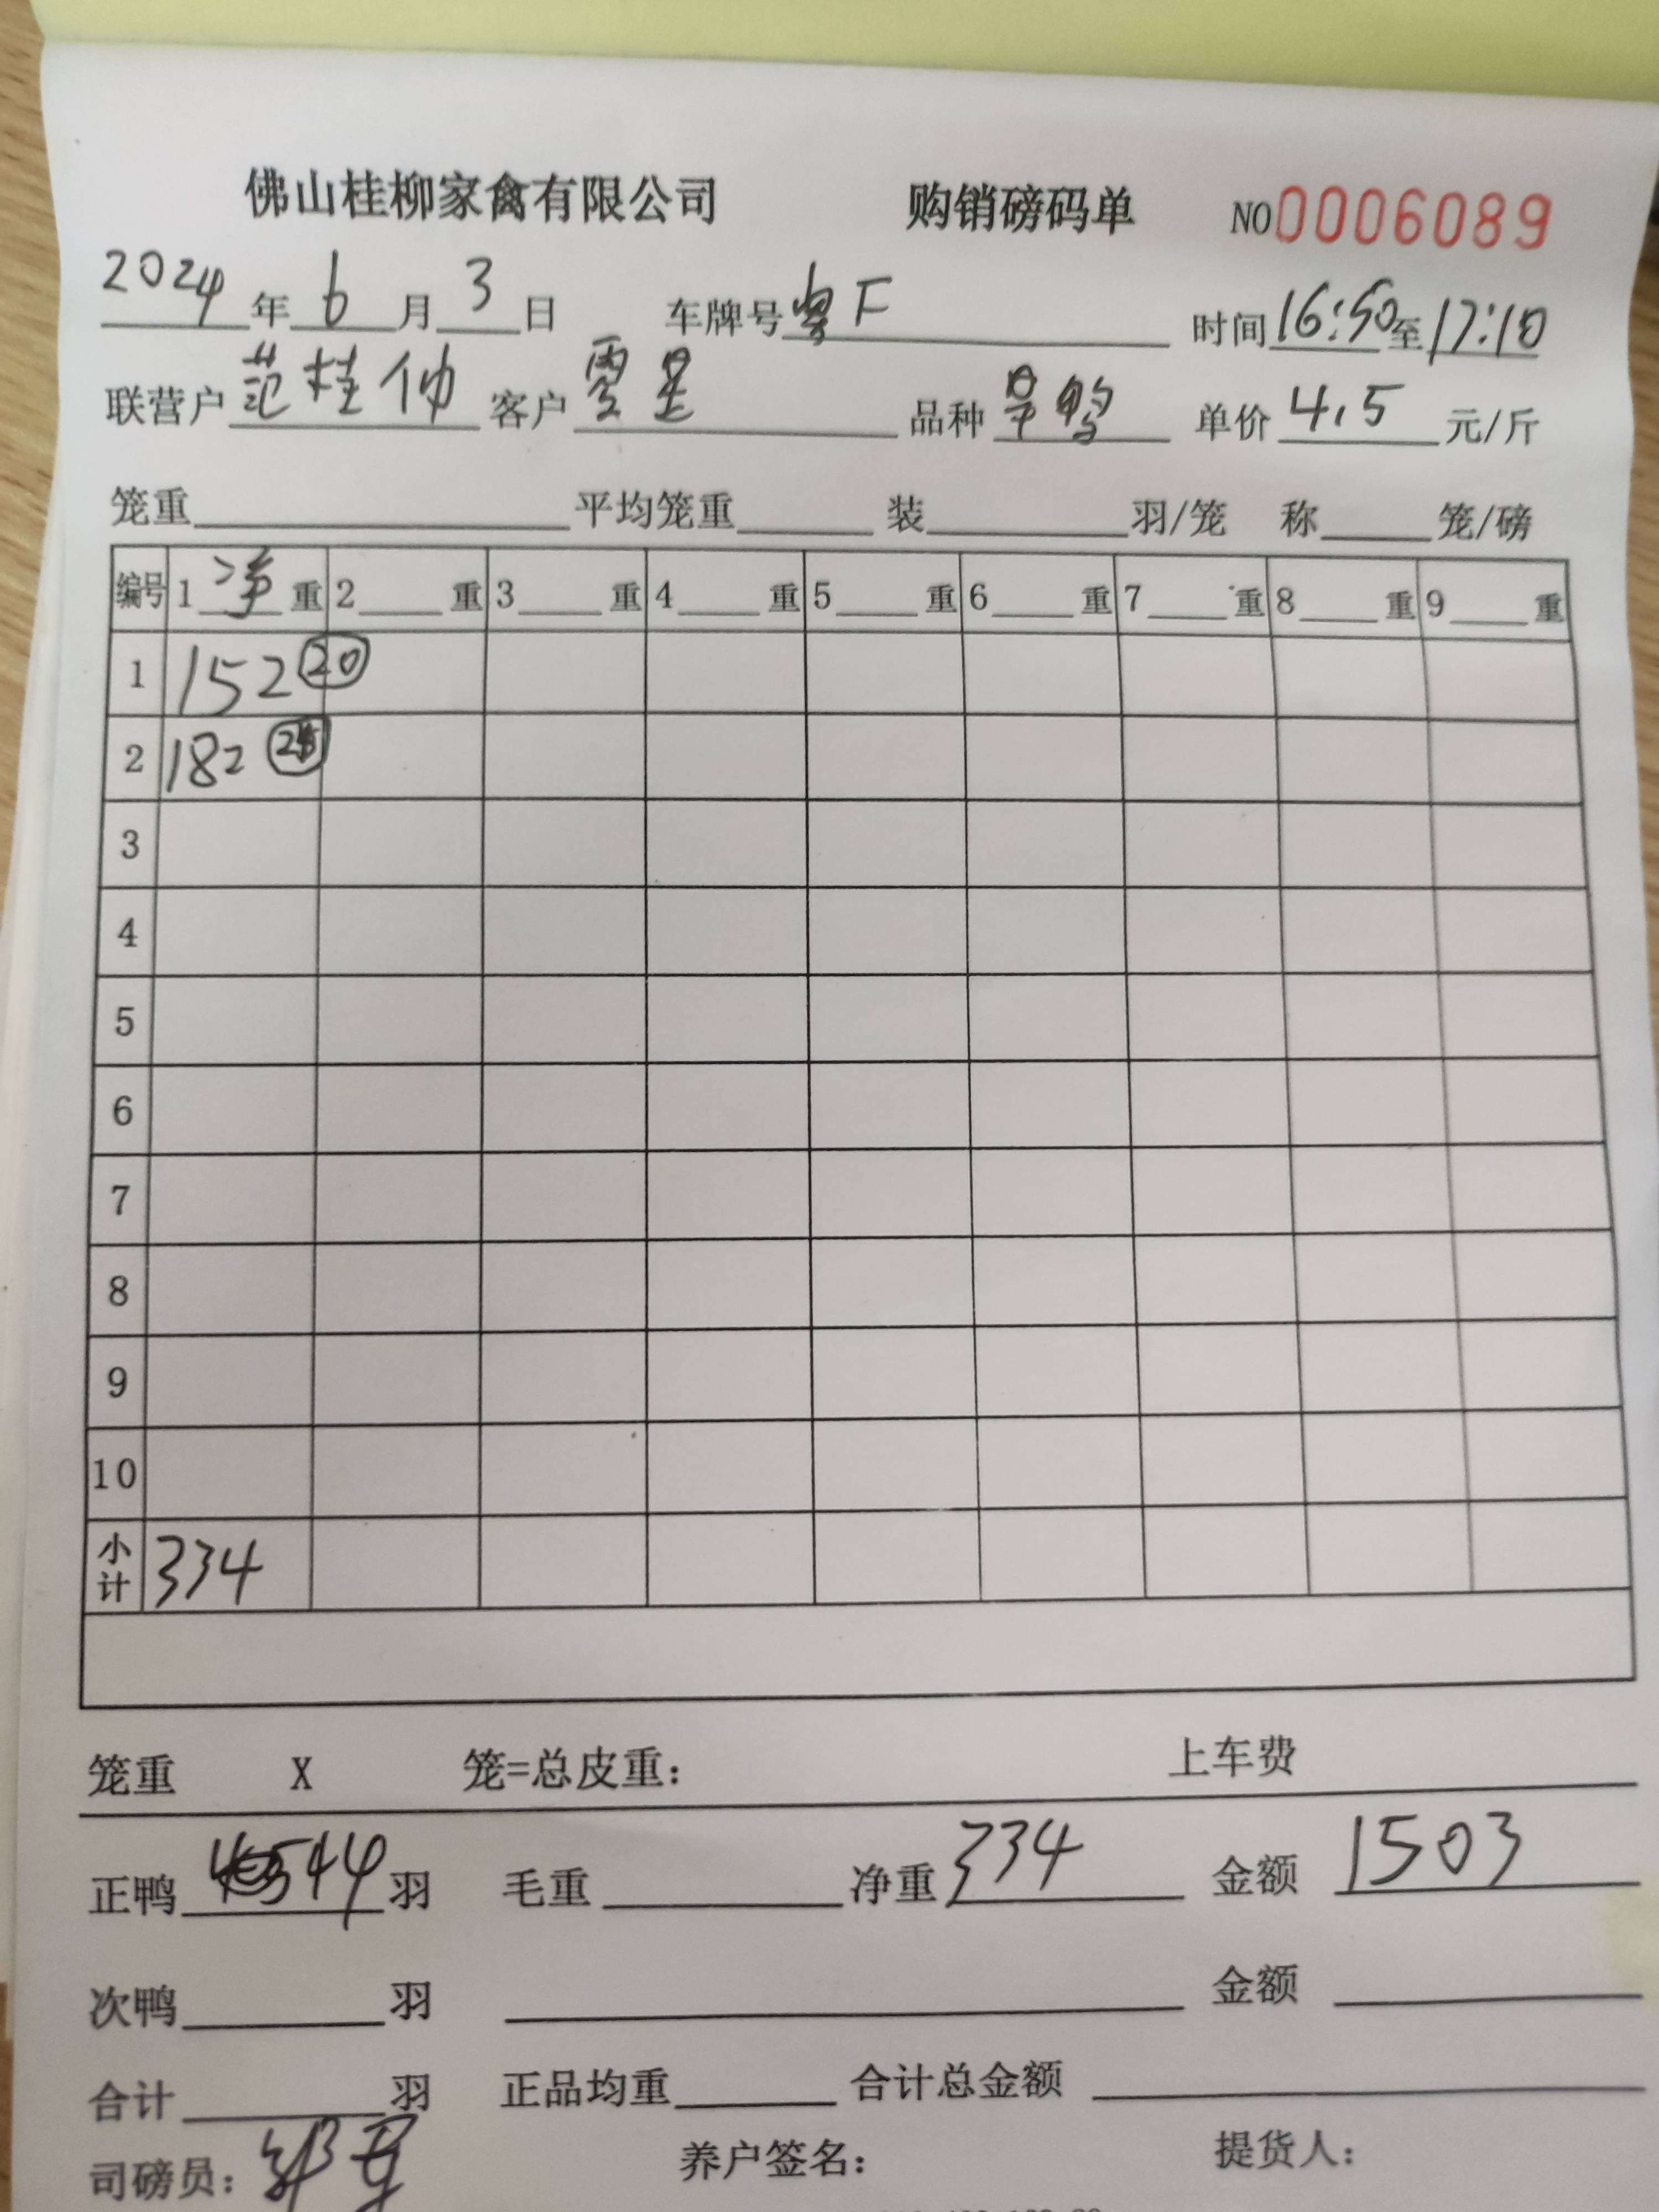 佛山桂柳家禽有限公司 购销磅码单 NO0006089
2024年6月3日 车牌号粤F 时间16:50至17:10
联营户范桂仲 客户 品种旱鸭 单价4.5元/斤
笼重 平均笼重 装 羽/笼 称 笼/磅
编号 1净重 2重 3重 4重 5重 6重 7重 8重 9重
1 152 20
2 182
3
4
5
6
7
8
9
10
小计 334
笼重 X 笼=总皮重: 上车费
正鸭 44羽 毛重 净重334 金额1503
次鸭 羽 金额
合计 羽 正品均重 合计总金额
司磅员: 养户签名: 提货人: